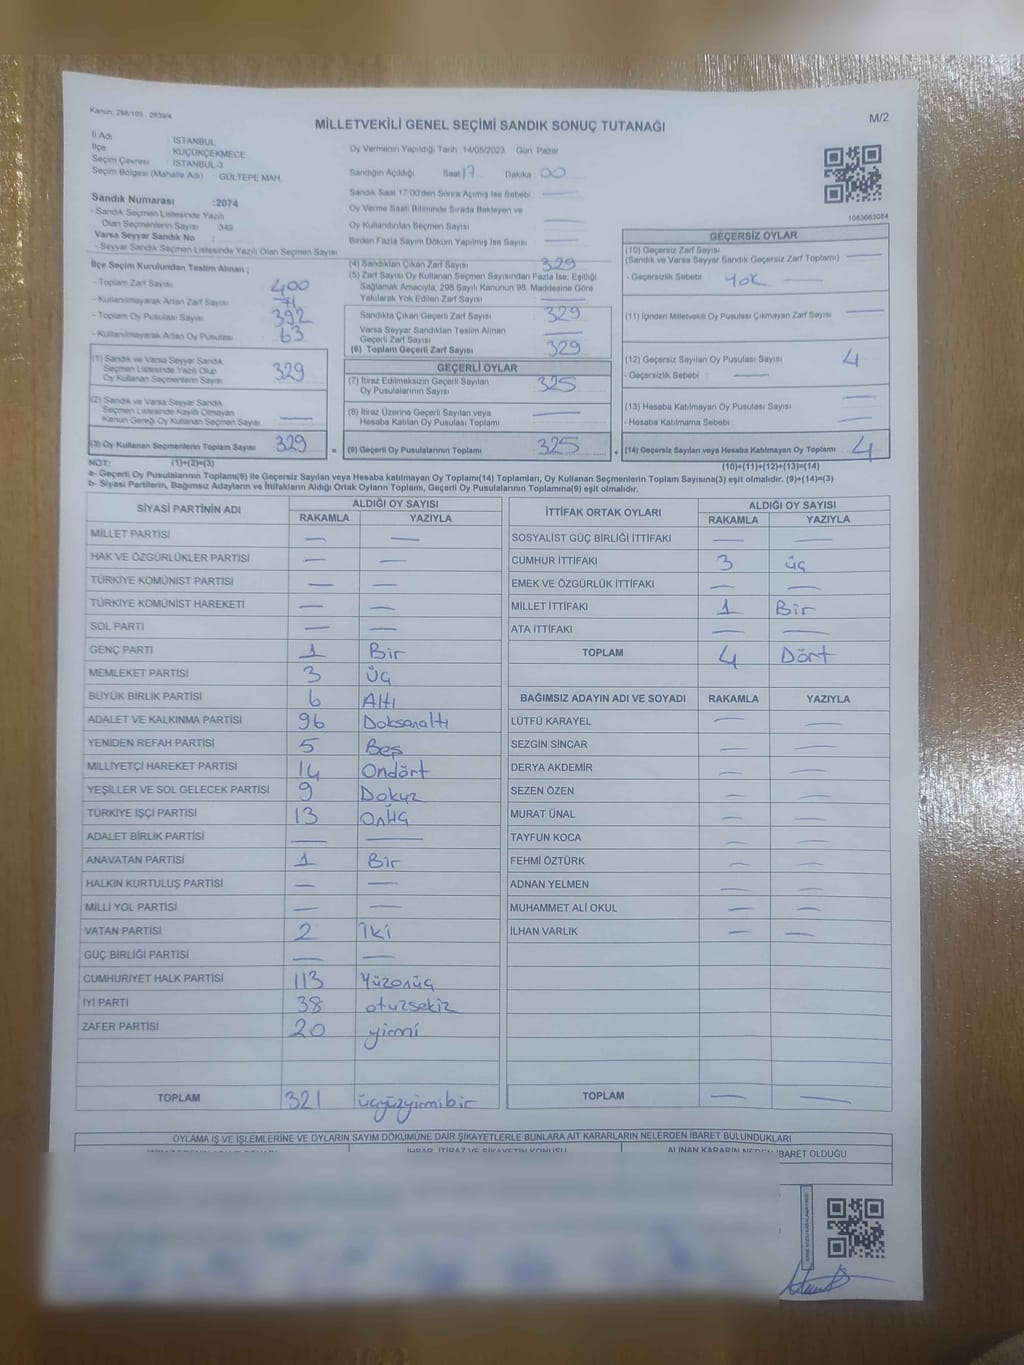 Kanun: 298/105 , 2839/4
M/2
MİLLETVEKİLİ GENEL SEÇİMİ SANDIK SONUÇ TUTANAĞI
İl Adı : İSTANBUL
İlçe KÜÇÜKÇEKMECE
Seçim Çevresi : İSTANBUL-3
Seçim Bölgesi (Mahalle Adı) : GÜLTEPE MAH.
Sandık Numarası :2074
- Sandık Seçmen Listesinde Yazılı
Olan Seçmenlerin Sayısı 349
Varsa Seyyar Sandık No :
- Seyyar Sandık Seçmen Listesinde Yazılı Olan Seçmen Sayısı
İlçe Seçim Kurulundan Teslim Alınan ;
- Toplam Zarf Sayısı 400
- Kullanılmayarak Artan Zarf Sayısı 71
- Toplam Oy Pusulası Sayısı 392
- Kullanılmayarak Artan Oy Pusulası 63
(1) Sandık ve Varsa Seyyar Sandık
Seçmen Listesinde Yazılı Olup
Oy Kullanan Seçmenlerin Sayısı 329
(2) Sandık ve Varsa Seyyar Sandık
Seçmen Listesinde Kayıtlı Olmayan
Kanun Gereği Oy Kullanan Seçmen Sayısı —
(3) Oy Kullanan Seçmenlerin Toplam Sayısı 329
Oy Vermenin Yapıldığı Tarih 14/05/2023 Gün Pazar
Sandığın Açıldığı Saat 17 Dakika 00
Sandık Saat 17:00'den Sonra Açılmış İse Sebebi : —
Oy Verme Saati Bitiminde Sırada Bekleyen ve
Oy Kullandırılan Seçmen Sayısı —
Birden Fazla Sayım Döküm Yapılmış İse Sayısı —
(4) Sandıktan Çıkan Zarf Sayısı 329
(5) Zarf Sayısı Oy Kullanan Seçmen Sayısından Fazla İse, Eşitliği
Sağlamak Amacıyla, 298 Sayılı Kanunun 98. Maddesine Göre
Yakılarak Yok Edilen Zarf Sayısı —
Sandıkta Çıkan Geçerli Zarf Sayısı 329
Varsa Seyyar Sandıktan Teslim Alınan
Geçerli Zarf Sayısı —
(6) Toplam Geçerli Zarf Sayısı 329
GEÇERLİ OYLAR
(7) İtiraz Edilmeksizin Geçerli Sayılan
Oy Pusulalarının Sayısı 325
(8) İtiraz Üzerine Geçerli Sayılan veya
Hesaba Katılan Oy Pusulası Toplamı —
= (9) Geçerli Oy Pusulalarının Toplamı 325
1083663084
GEÇERSİZ OYLAR
(10) Geçersiz Zarf Sayısı
(Sandık ve Varsa Seyyar Sandık Geçersiz Zarf Toplamı) —
- Geçersizlik Sebebi : Yok —
(11) İçinden Milletvekili Oy Pusulası Çıkmayan Zarf Sayısı —
(12) Geçersiz Sayılan Oy Pusulası Sayısı 4
- Geçersizlik Sebebi : —
(13) Hesaba Katılmayan Oy Pusulası Sayısı —
- Hesaba Katılmama Sebebi : —
+ (14) Geçersiz Sayılan veya Hesaba Katılmayan Oy Toplamı 4
NOT: (1)+(2)=(3)
(10)+(11)+(12)+(13)=(14)
a- Geçerli Oy Pusulalarının Toplamı(9) ile Geçersiz Sayılan veya Hesaba Katılmayan Oy Toplamı(14) Toplamları, Oy Kullanan Seçmenlerin Toplam Sayısına(3) eşit olmalıdır. (9)+(14)=(3)
b- Siyasi Partilerin, Bağımsız Adayların ve İttifakların Aldığı Ortak Oyların Toplamı, Geçerli Oy Pusulalarının Toplamına(9) eşit olmalıdır.
SİYASİ PARTİNİN ADI ALDIĞI OY SAYISI
RAKAMLA YAZIYLA
MİLLET PARTİSİ — —
HAK VE ÖZGÜRLÜKLER PARTİSİ — —
TÜRKİYE KOMÜNİST PARTİSİ — —
TÜRKİYE KOMÜNİST HAREKETİ — —
SOL PARTİ — —
GENÇ PARTİ 1 Bir
MEMLEKET PARTİSİ 3 Üç
BÜYÜK BİRLİK PARTİSİ 6 Altı
ADALET VE KALKINMA PARTİSİ 96 Doksanaltı
YENİDEN REFAH PARTİSİ 5 Beş
MİLLİYETÇİ HAREKET PARTİSİ 14 Ondört
YEŞİLLER VE SOL GELECEK PARTİSİ 9 Dokuz
TÜRKİYE İŞÇİ PARTİSİ 13 Onüç
ADALET BİRLİK PARTİSİ — —
ANAVATAN PARTİSİ 1 Bir
HALKIN KURTULUŞ PARTİSİ — —
MİLLİ YOL PARTİSİ — —
VATAN PARTİSİ 2 İki
GÜÇ BİRLİĞİ PARTİSİ — —
CUMHURİYET HALK PARTİSİ 113 Yüzonüç
İYİ PARTİ 38 otuzsekiz
ZAFER PARTİSİ 20 yirmi
TOPLAM 321 üçyüzyirmibir
İTTİFAK ORTAK OYLARI ALDIĞI OY SAYISI
RAKAMLA YAZIYLA
SOSYALİST GÜÇ BİRLİĞİ İTTİFAKI — —
CUMHUR İTTİFAKI 3 üç
EMEK VE ÖZGÜRLÜK İTTİFAKI — —
MİLLET İTTİFAKI 1 Bir
ATA İTTİFAKI — —
TOPLAM 4 Dört
BAĞIMSIZ ADAYIN ADI VE SOYADI RAKAMLA YAZIYLA
LÜTFÜ KARAYEL — —
SEZGİN SİNCAR — —
DERYA AKDEMİR — —
SEZEN ÖZEN — —
MURAT ÜNAL — —
TAYFUN KOCA — —
FEHMİ ÖZTÜRK — —
ADNAN YELMEN — —
MUHAMMET ALİ OKUL — —
İLHAN VARLIK — —
TOPLAM — —
OYLAMA İŞ VE İŞLEMLERİNE VE OYLARIN SAYIM DÖKÜMÜNE DAİR ŞİKAYETLERLE BUNLARA AİT KARARLARIN NELERDEN İBARET BULUNDUKLARI
İHBAR, İTİRAZ VE ŞİKAYETİN KONUSU
ALINAN KARARIN NEDEN İBARET OLDUĞU